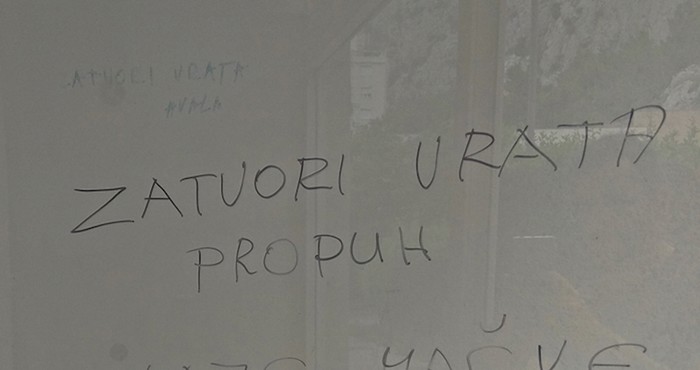 ZATVORI VRATA
HVALA
ZATVORI VRATA
PROPUH